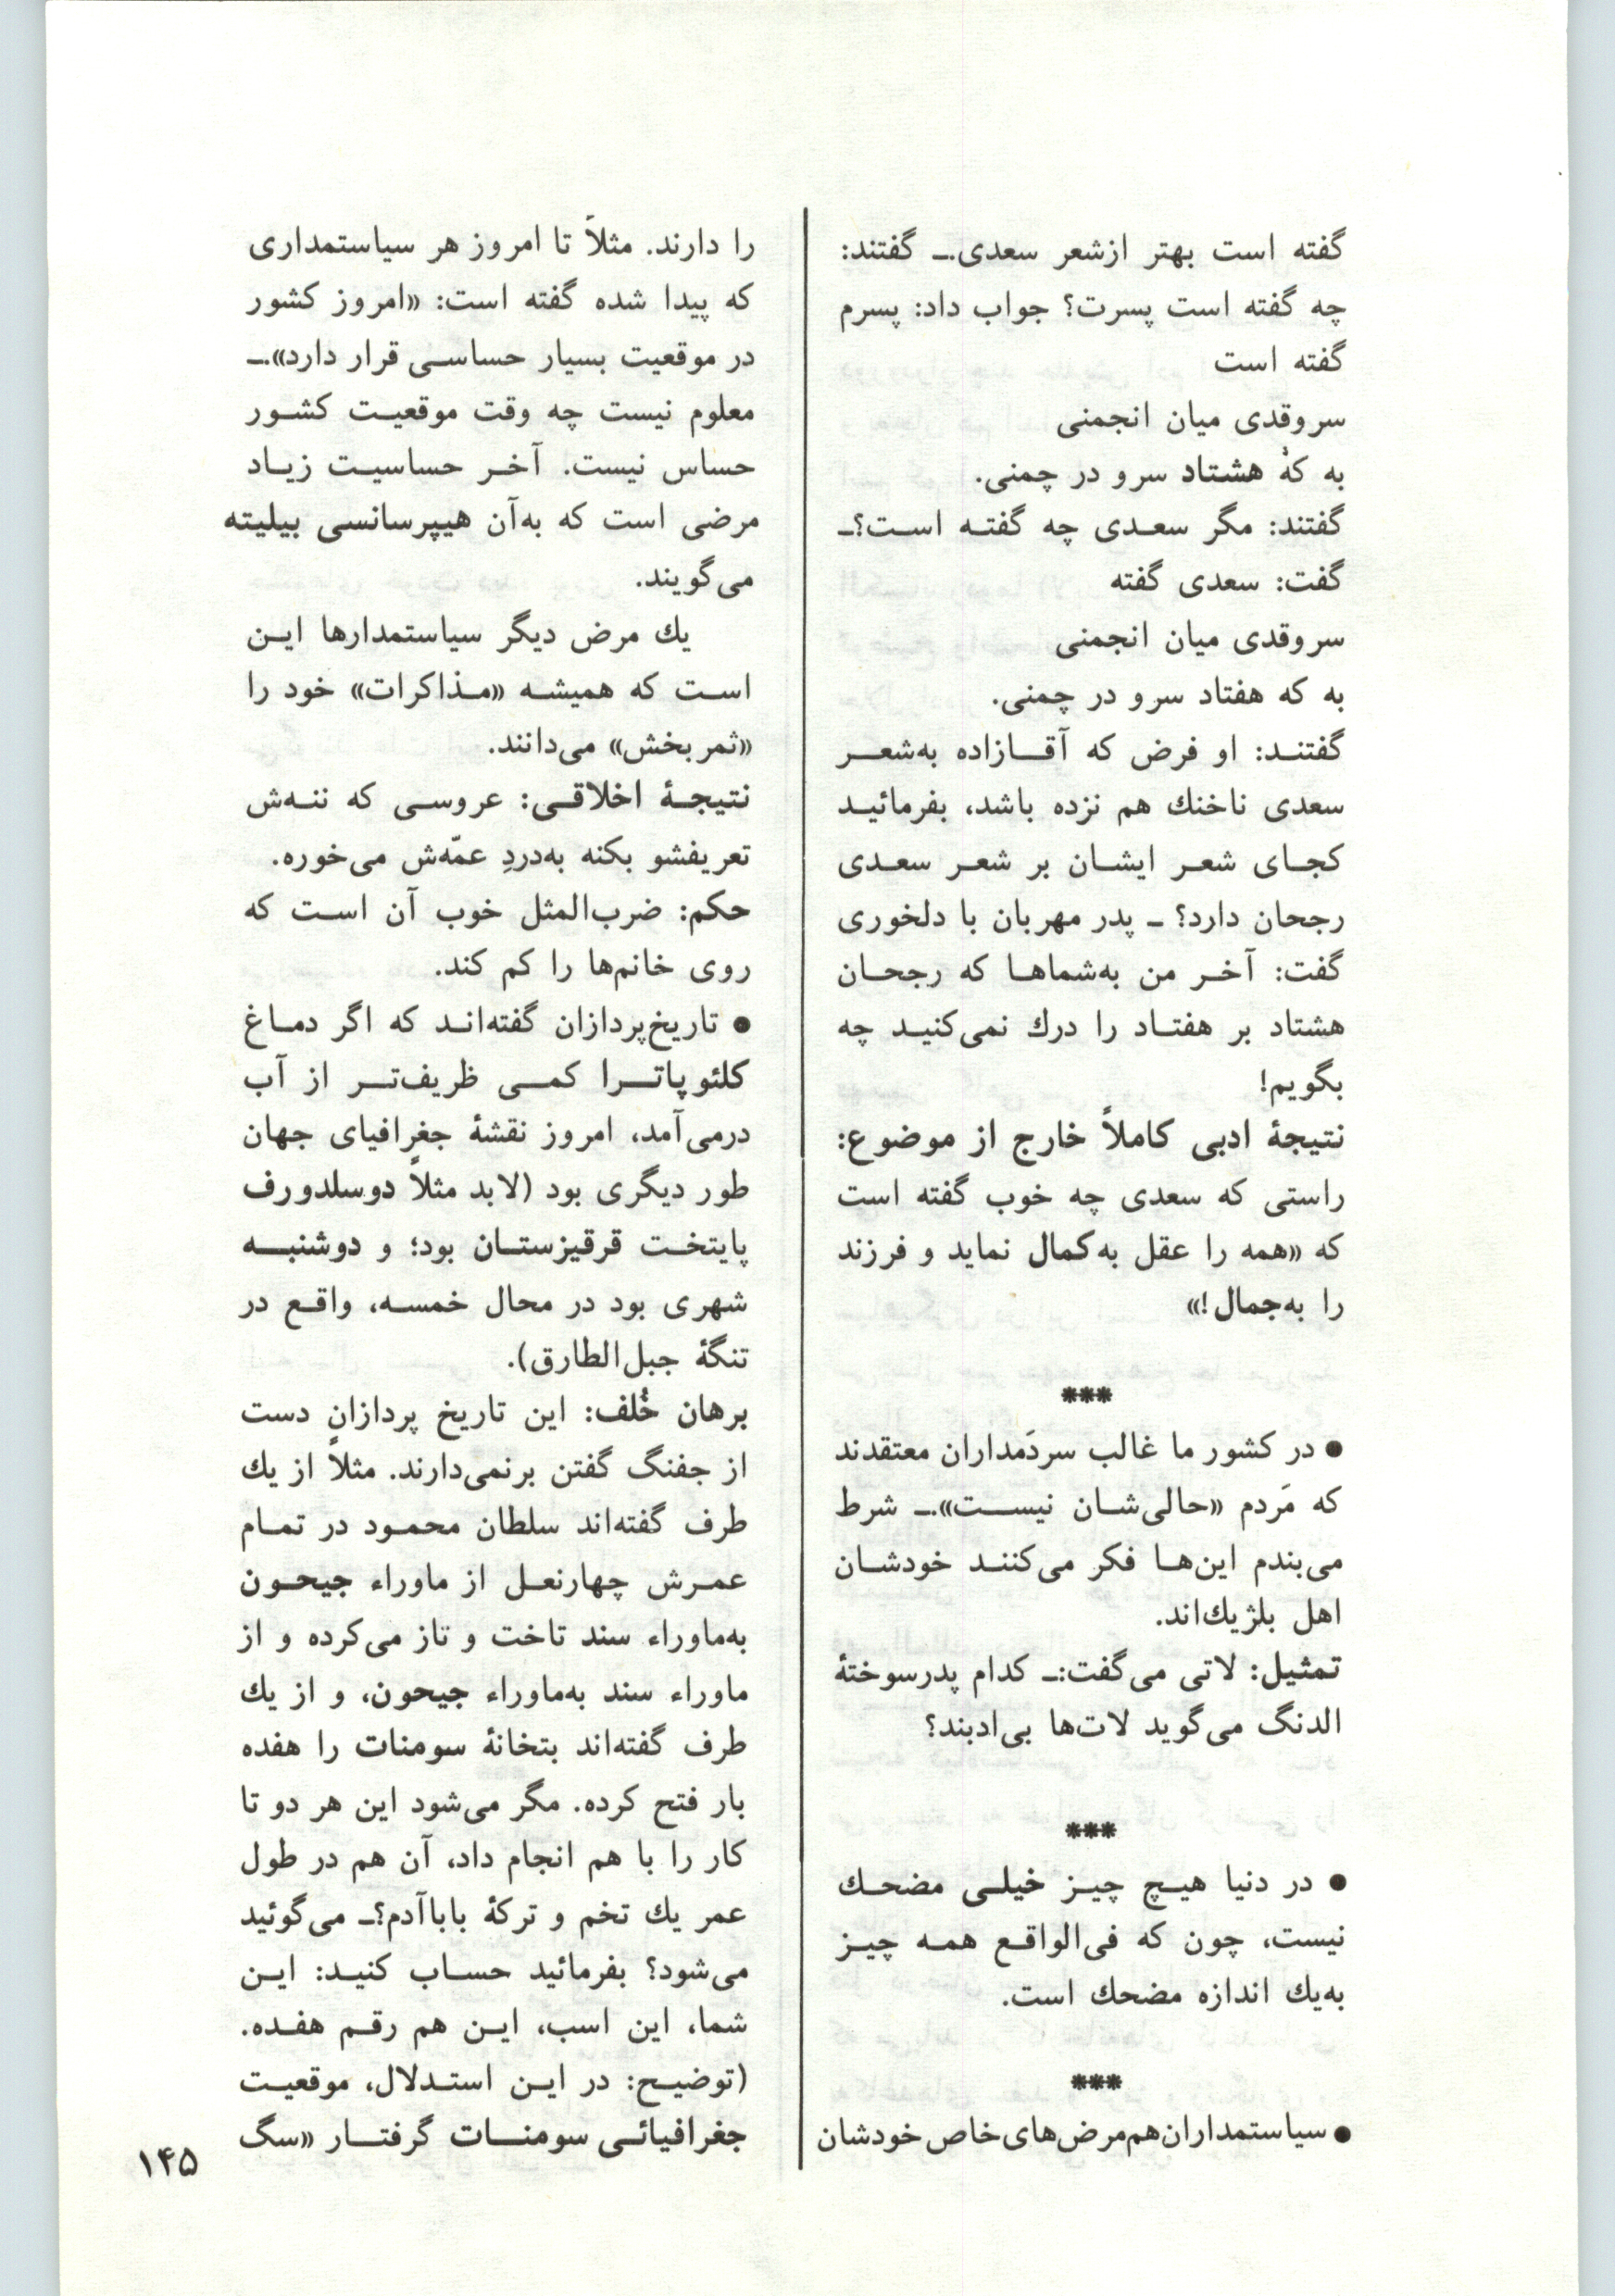 گفته است بهتر ازشعر سعدی.ـ گفتند:
چه گفته است پسرت؟ جواب داد: پسرم
گفته است
سروقدی میان انجمنی
به کهْ هشتاد سرو در چمنی.
گفتند: مگر سعدی چه گفته است؟ـ
گفت: سعدی گفته
سروقدی میان انجمنی
به که هفتاد سرو در چمنی.
گفتند: او فرض که آقازاده به‌شعر
سعدی ناخنك هم نزده باشد، بفرمائید
کجای شعر ایشان بر شعر سعدی
رجحان دارد؟ ـ پدر مهربان با دلخوری
گفت: آخر من به‌شماها که رجحان
هشتاد بر هفتاد را درك نمی‌کنید چه
بگویم!
نتیجهٔ ادبی کاملاً خارج از موضوع:
راستی که سعدی چه خوب گفته است
که «همه را عقل به‌کمال نماید و فرزند
را به‌جمال!»
***
● در کشور ما غالب سردَمداران معتقدند
که مَردم «حالی‌شان نیست».ـ شرط
می‌بندم این‌ها فکر می‌کنند خودشان
اهل بلژیك‌اند.
تمثیل: لاتی می‌گفت:ـ کدام پدرسوختهٔ
الدنگ می‌گوید لات‌ها بی‌ادبند؟
***
● در دنیا هیچ چیز خیلی مضحك
نیست، چون که فی‌الواقع همه چیز
به‌یك اندازه مضحك است.
***
● سیاستمداران‌هم‌مرض‌های‌خاص‌خودشان
را دارند. مثلاً تا امروز هر سیاستمداری
که پیدا شده گفته است: «امروز کشور
در موقعیت بسیار حساسی قرار دارد».ـ
معلوم نیست چه وقت موقعیت کشور
حساس نیست. آخر حساسیت زیاد
مرضی است که به‌آن هیپرسانسی بیلیته
می‌گویند.
یك مرض دیگر سیاستمدارها این
است که همیشه «مذاکرات» خود را
«ثمربخش» می‌دانند.
نتیجهٔ اخلاقی: عروسی که ننه‌ش
تعریفشو بکنه به‌دردِ عمّه‌ش می‌خوره.
حکم: ضرب‌المثل خوب آن است که
روی خانم‌ها را کم کند.
● تاریخ‌پردازان گفته‌اند که اگر دماغ
کلئوپاترا کمی ظریف‌تر از آب
درمی‌آمد، امروز نقشهٔ جغرافیای جهان
طور دیگری بود (لابد مثلاً دوسلدورف
پایتخت قرقیزستان بود؛ و دوشنبه
شهری بود در محال خمسه، واقع در
تنگهٔ جبل‌الطارق).
برهان خُلف: این تاریخ پردازان دست
از جفنگ گفتن برنمی‌دارند. مثلاً از یك
طرف گفته‌اند سلطان محمود در تمام
عمرش چهارنعل از ماوراء جیحون
به‌ماوراء سند تاخت و تاز می‌کرده و از
ماوراء سند به‌ماوراء جیحون، و از یك
طرف گفته‌اند بتخانهٔ سومنات را هفده
بار فتح کرده. مگر می‌شود این هر دو تا
کار را با هم انجام داد، آن هم در طول
عمر یك تخم و ترکهٔ باباآدم؟ـ می‌گوئید
می‌شود؟ بفرمائید حساب کنید: این
شما، این اسب، این هم رقم هفده.
(توضیح: در این استدلال، موقعیت
جغرافیائی سومنات گرفتار «سگ
۱۴۵